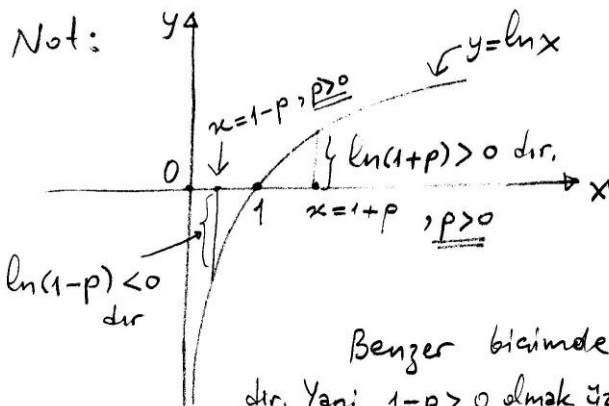 Not:
y
y=lnx
x=1-p, p>0
ln(1+p)>0 dır.
0
1
x=1+p, p>0
x
ln(1-p)<0
dır
Benzer biçimde
dır. Yani 1-p>0 olmak üz